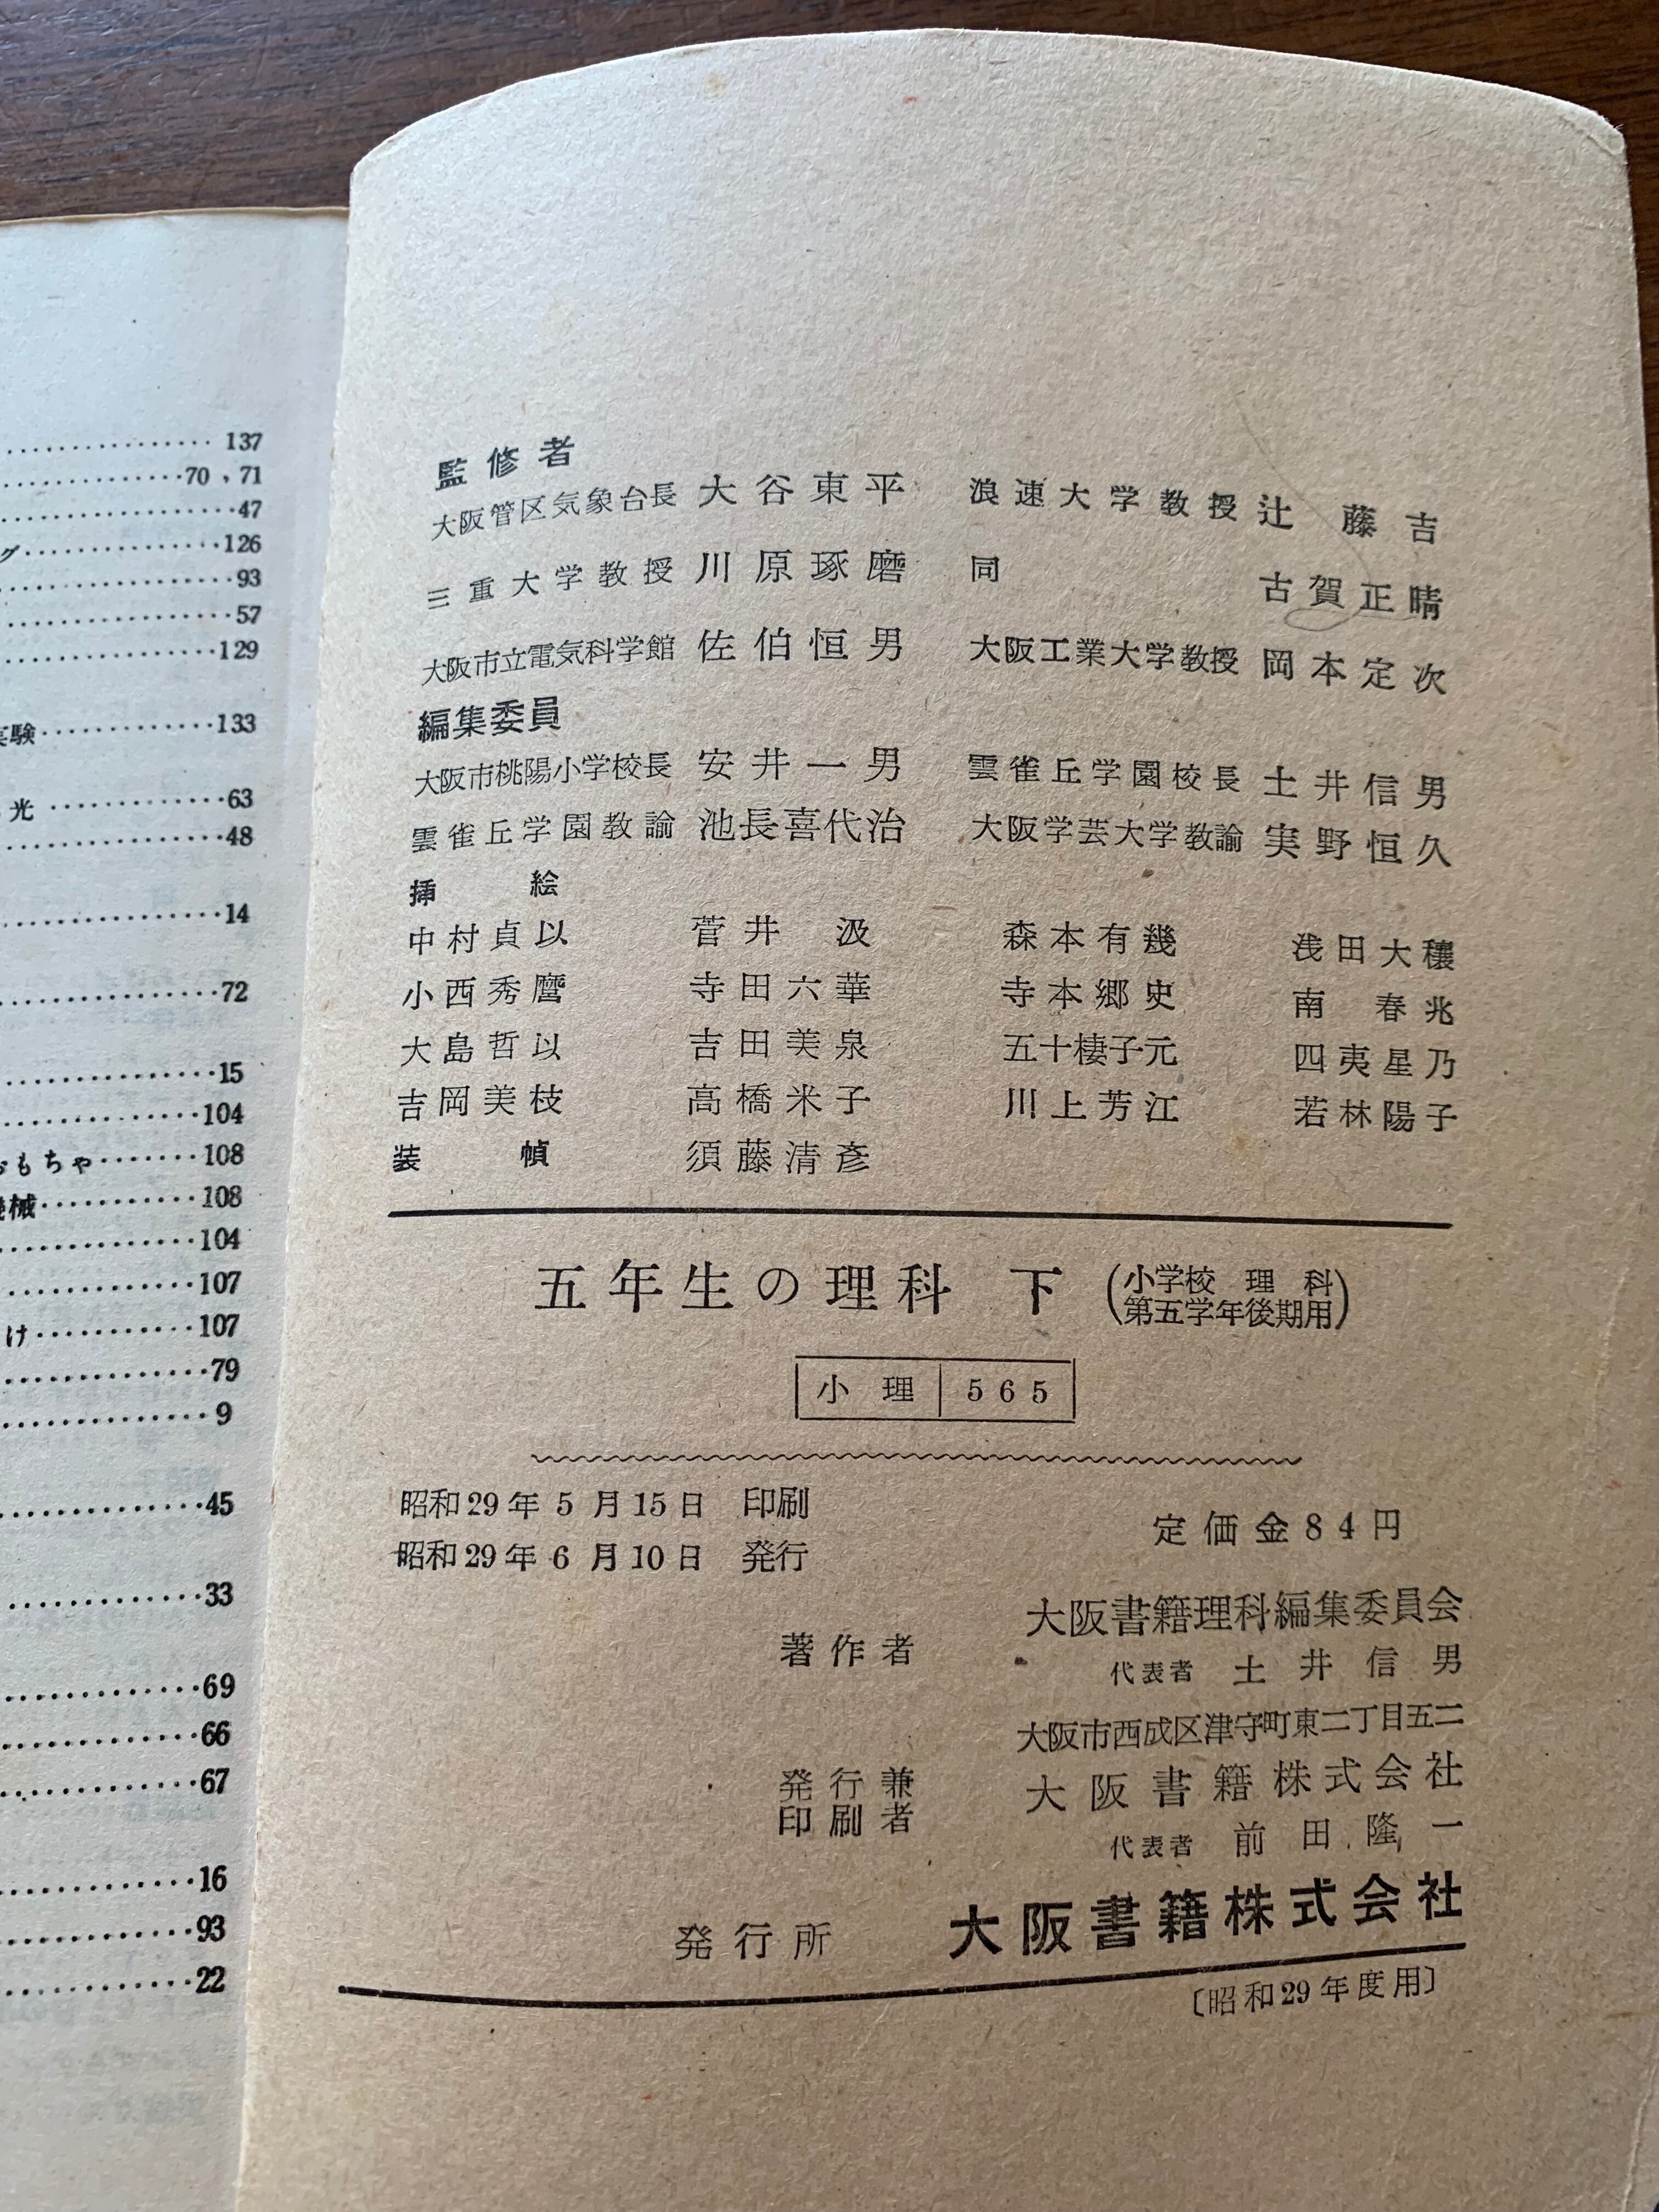 137
70，71
47
グ 126
93
57
129
実験 133
光 63
48
14
72
15
104
おもちゃ 108
機械 108
104
107
け 107
79
9
45
33
69
66
67
16
93
22
監修者
大阪管区気象台長 大谷東平 浪速大学教授 辻藤吉
三重大学教授 川原琢磨 同 古賀正晴
大阪市立電気科学館 佐伯恒男 大阪工業大学教授 岡本定次
編集委員
大阪市桃陽小学校長 安井一男 雲雀丘学園校長 土井信男
雲雀丘学園教諭 池長喜代治 大阪学芸大学教諭 実野恒久
挿絵
中村貞以 菅井汲 森本有幾 浅田大穰
小西秀麿 寺田六華 寺本郷史 南春兆
大島哲以 吉田美泉 五十棲子元 四夷星乃
吉岡美枝 高橋米子 川上芳江 若林陽子
装幀 須藤清彦
五年生の理科 下 (小学校 理科
第五学年後期用)
小理 565
昭和29年5月15日 印刷
昭和29年6月10日 発行
定価金84円
著作者 大阪書籍理科編集委員会
代表者 土井信男
大阪市西成区津守町東二丁目五二
発行兼
印刷者 大阪書籍株式会社
代表者 前田隆一
発行所 大阪書籍株式会社
〔昭和29年度用〕